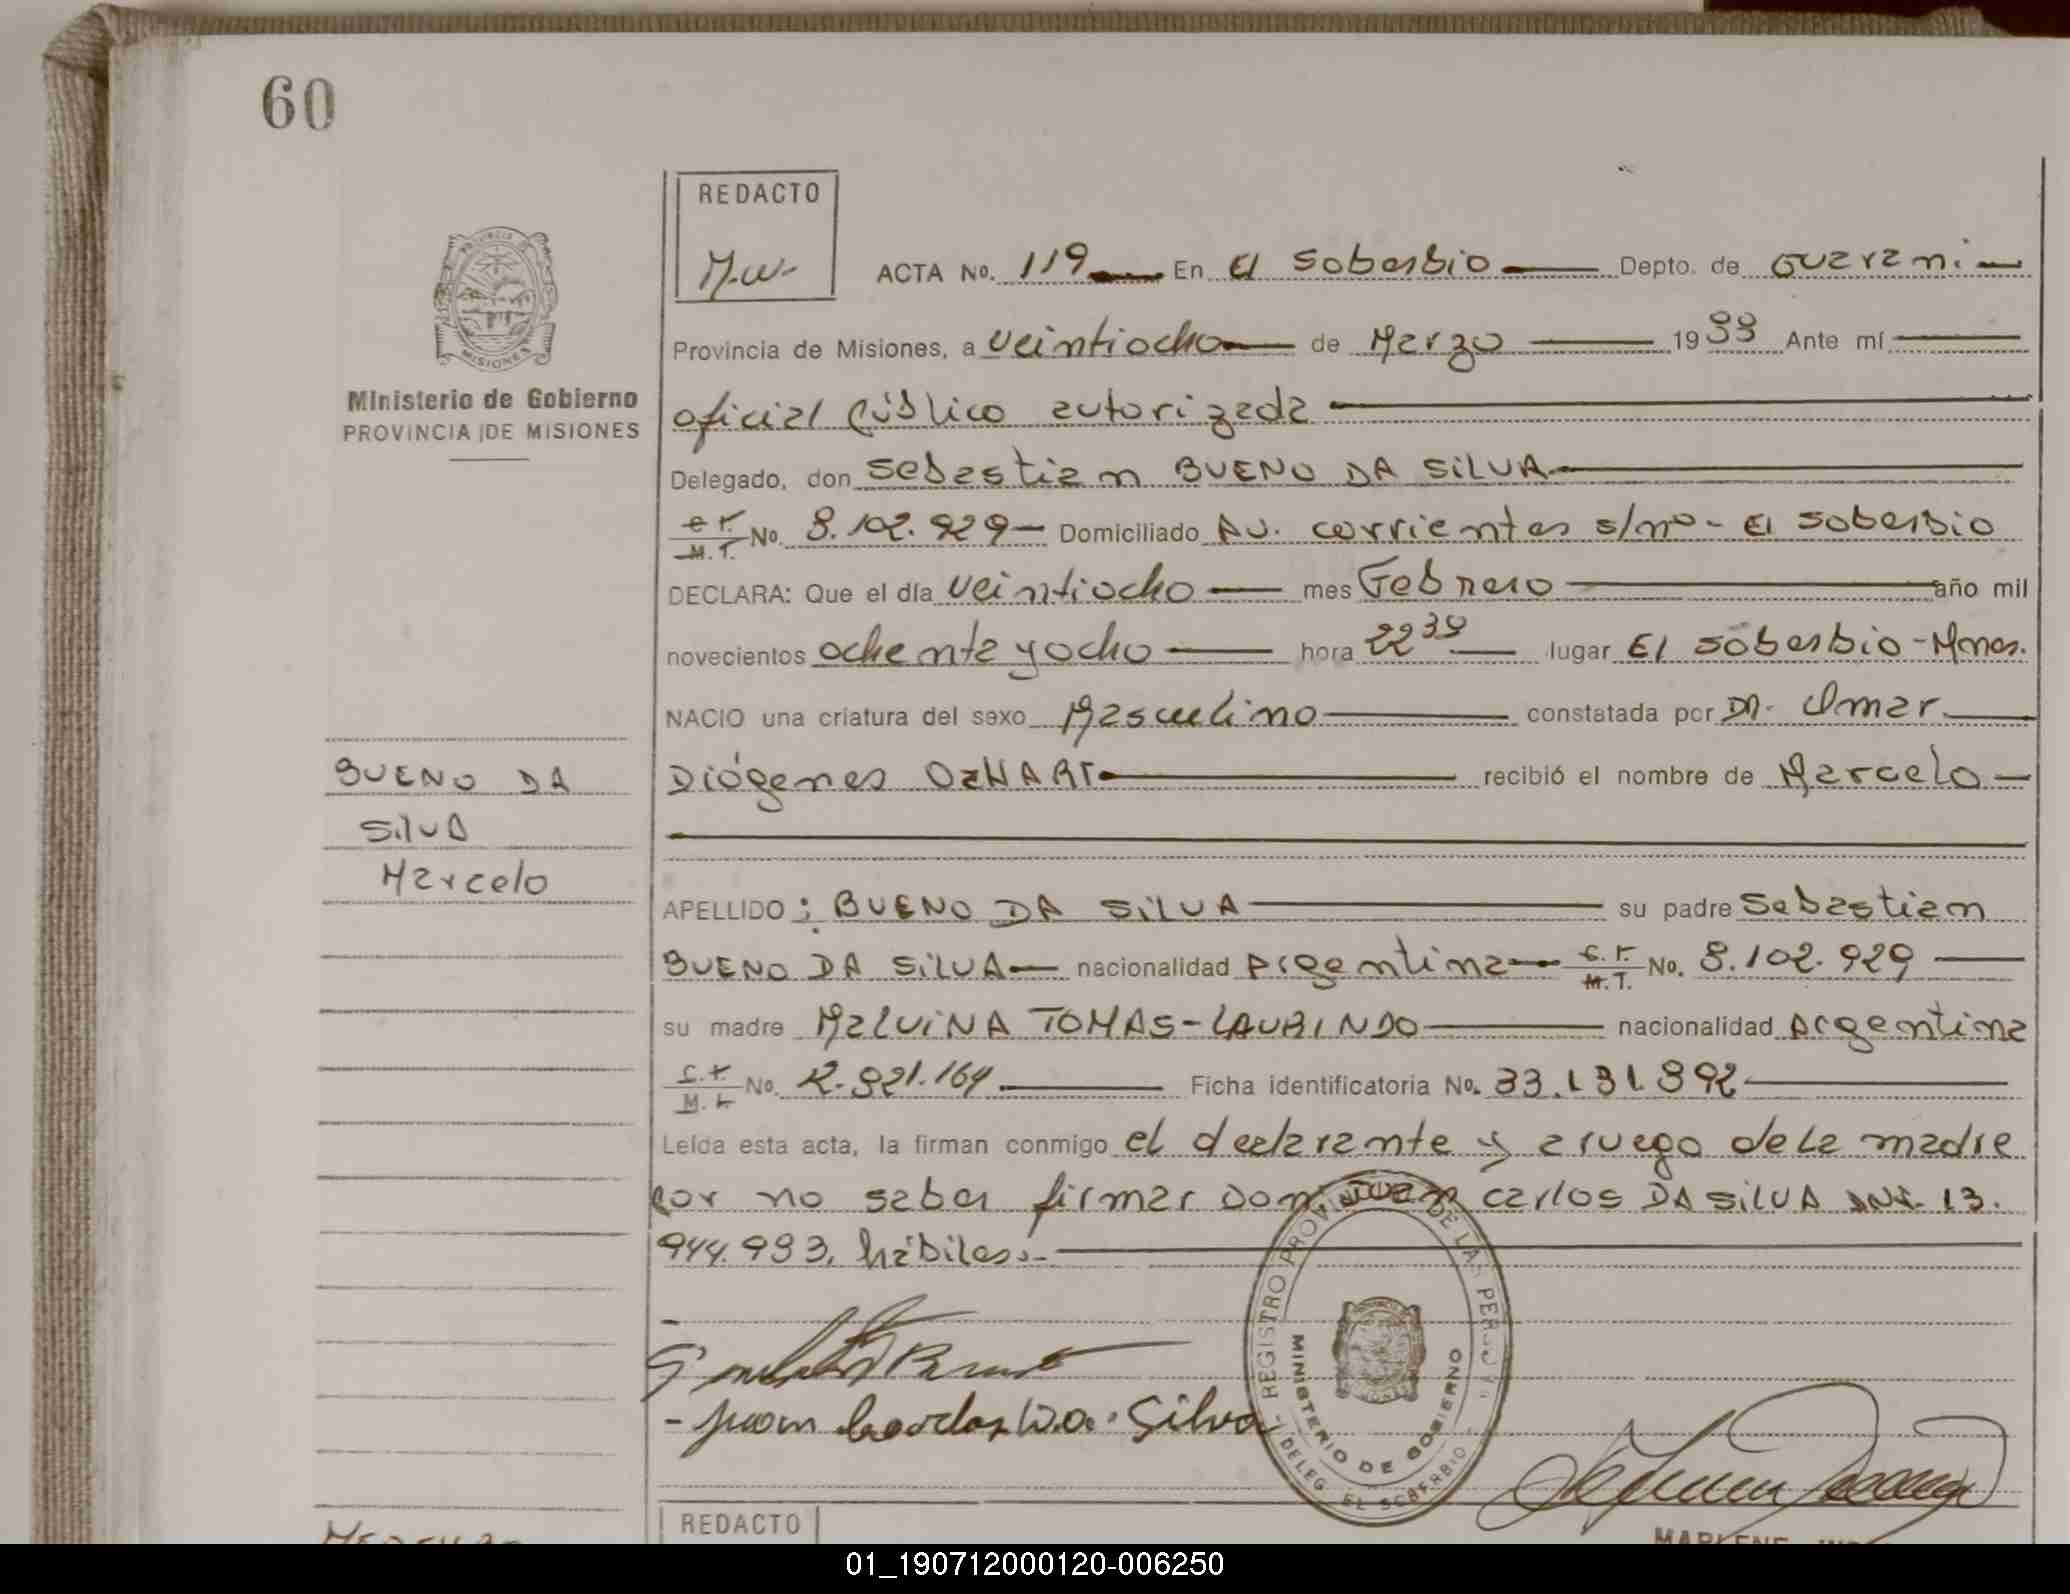 60
REDACTO
M.W-
ACTA No. 119 En El Soberbio Depto. de Guarani
Provincia de Misiones, a veintiocho de Marzo 1988 Ante mí
oficial público autorizada
Delegado, don Sebastian BUENO DA SILVA
No. 8.102.929 Domiciliado Av. corrientes s/nº - El Soberbio
M.T.
DECLARA: Que el día veintiocho mes Febrero año mil
novecientos ochenta y ocho hora 22 30 lugar El Soberbio - Mnes.
NACIO una criatura del sexo Masculino constatada por Dr. Omar
Diógenes OZNART recibió el nombre de Marcelo
APELLIDO : BUENO DA SILVA su padre Sebastian
BUENO DA SILVA nacionalidad Argentina No. 8.102.929
M.T.
su madre MALVINA TOMAS-LAURINDO nacionalidad Argentina
No. Ficha identificatoria No. 33.131.892
Leída esta acta, la firman conmigo el declarante y a ruego de la madre
por no saber firmar Don Juan carlos DA SILVA DNI. 13.
944.993, hábiles.-
Juan Carlos Da. Silva
Ministerio de Gobierno
PROVINCIA DE MISIONES
MISIONES
BUENO DA
SILVA
Marcelo
REGISTRO PROVINCIAL DE LAS PERSONAS
MINISTERIO DE GOBIERNO
DELEG. EL SOBERBIO
REDACTO
MARLENE
01_190712000120-006250